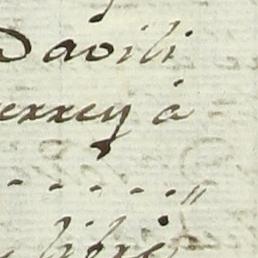 Davili
errey à
. . . . . . . "
libre